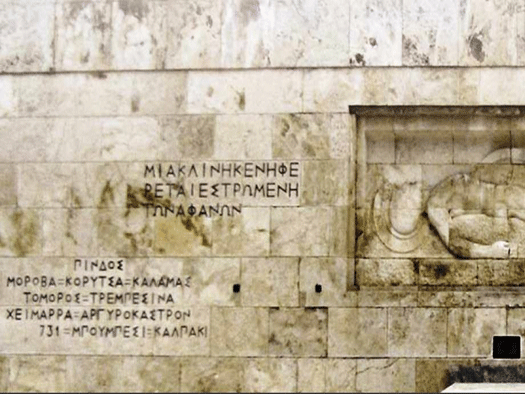 ΜΙΑΚΛΙΝΗΚΕΝΗΦΕ
ΡΕΤΑΙΕΣΤΡΩΜΕΝΗ
ΤΩΝΑΦΑΝΩΝ
ΠΙΝΔΟΣ
ΜΟΡΟΒΑ=ΚΟΡΥΤΣΑ=ΚΑΛΑΜΑΣ
ΤΟΜΟΡΟΣ=ΤΡΕΜΠΕΣΙΝΑ
ΧΕΙΜΑΡΡΑ=ΑΡΓΥΡΟΚΑΣΤΡΟΝ
731=ΜΠΟΥΜΠΕΣΙ=ΚΑΛΠΑΚΙ